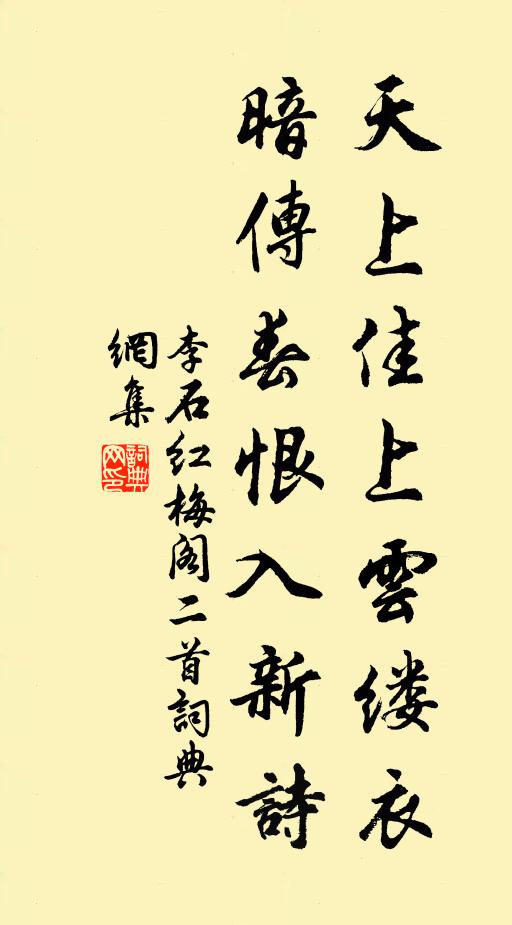 天上佳上雲缕衣
暗傳春恨入新詩
李石红梅阁二首詞典
網集
詞典
网印